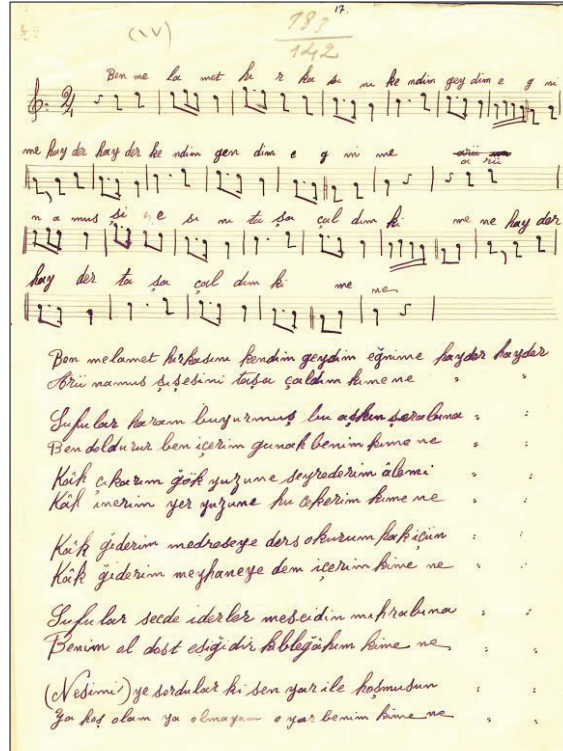 17.
(XV)
783
142
Ben me la met hı r ka sı nı ke ndim gey dim e ğ ni
me hay der hay der ke ndim gey dim e ğ ni me a rii
n a mus şi şe si ni ta şa çal dım ki me ne hay der
hay der ta şa çal dım ki me ne
Ben melamet hırkasını kendim geydim eğnime hayder hayder
Arii namus şişesini taşa çaldım kime ne " "
Sufular haram buyurmuş bu aşkın şerabına " "
Ben doldurur ben içerim gunah benim kime ne " "
Kâh çıkarım gök yuzune seyrederim âlemi " "
Kâh inerim yer yuzune hu çekerim kime ne " "
Kâh ğiderim medreseye ders okurum hak içün " "
Kâh ğiderim meyhaneye dem içerim kime ne " "
Sufular secde iderler mescidin mihrabına " "
Benim ol dost eşiğidir kıbleğâhım kime ne " "
(Nesimi)ye sordular ki sen yar ile hoşmusun " "
Ya hoş olam ya olmayam o yar benim kime ne " "